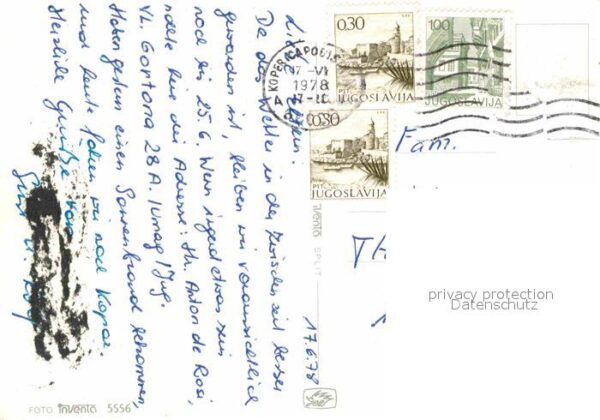 Liebe Eltern!
Da das Wetter in der Zwischenzeit besser
geworden ist, bleiben wir voraussichtlich
noch bis 25.6. Wenn irgend etwas sein
sollte hier die Adresse: Hr. Anton de Rosi,
VL. Gortona 28 A. Umag / Jug.
Haben gestern einen Sonnenbrand bekommen,
und heute fahren wir nach Koper.
Herzliche Grüße
17.6.78
Fam.
0.30
PITVE
JUGOSLAVIJA
1.00
JUGOSLAVIJA
0.30
JUGOSLAVIJA
KOPER CAPODIS
17-VI
1978
A
inventa SPLIT
FOTO inventa 5556
privacy protection
Datenschutz